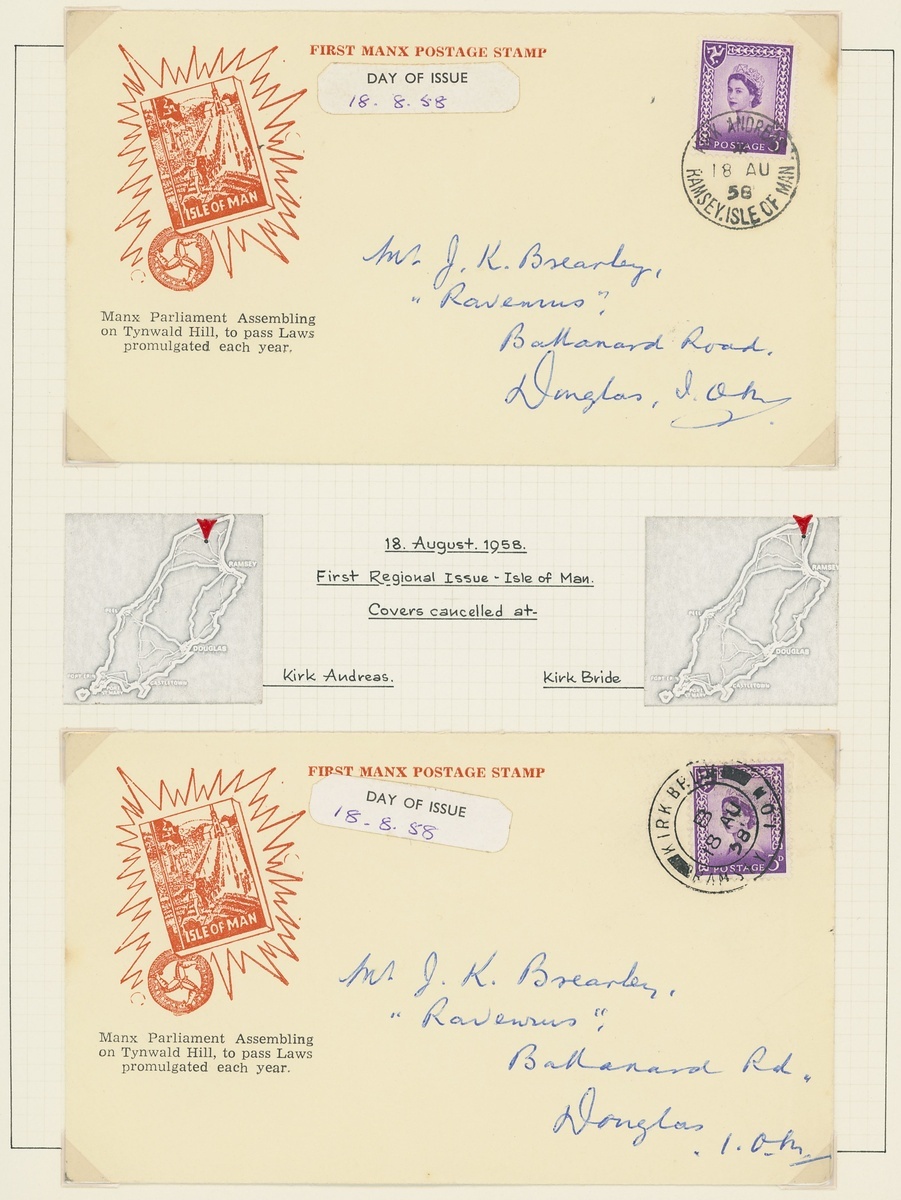 FIRST MANX POSTAGE STAMP
DAY OF ISSUE
18. 8. 58
POSTAGE 3D
KIRK ANDREAS
18 AU
58
RAMSEY. ISLE OF MAN
ISLE OF MAN
Manx Parliament Assembling
on Tynwald Hill, to pass Laws
promulgated each year.
Mr. J. K. Brearley,
"Ravenrus",
Ballanard Road.
Douglas, I.O.M.
18. August. 1958.
First Regional Issue - Isle of Man.
Covers cancelled at-
Kirk Andreas.
Kirk Bride
RAMSEY
PEEL
DOUGLAS
PORT ERIN
PORT ST MARY
CASTLETOWN
RAMSEY
PEEL
DOUGLAS
PORT ERIN
PORT ST MARY
CASTLETOWN
FIRST MANX POSTAGE STAMP
DAY OF ISSUE
18-8.58
KIRK BRIDE
18 AU
58
RAMSEY I.O.M
3D
ISLE OF MAN
Manx Parliament Assembling
on Tynwald Hill, to pass Laws
promulgated each year.
Mr. J. K. Brearley,
"Ravenrus",
Ballanard Rd.,
Douglas
I.O.M.